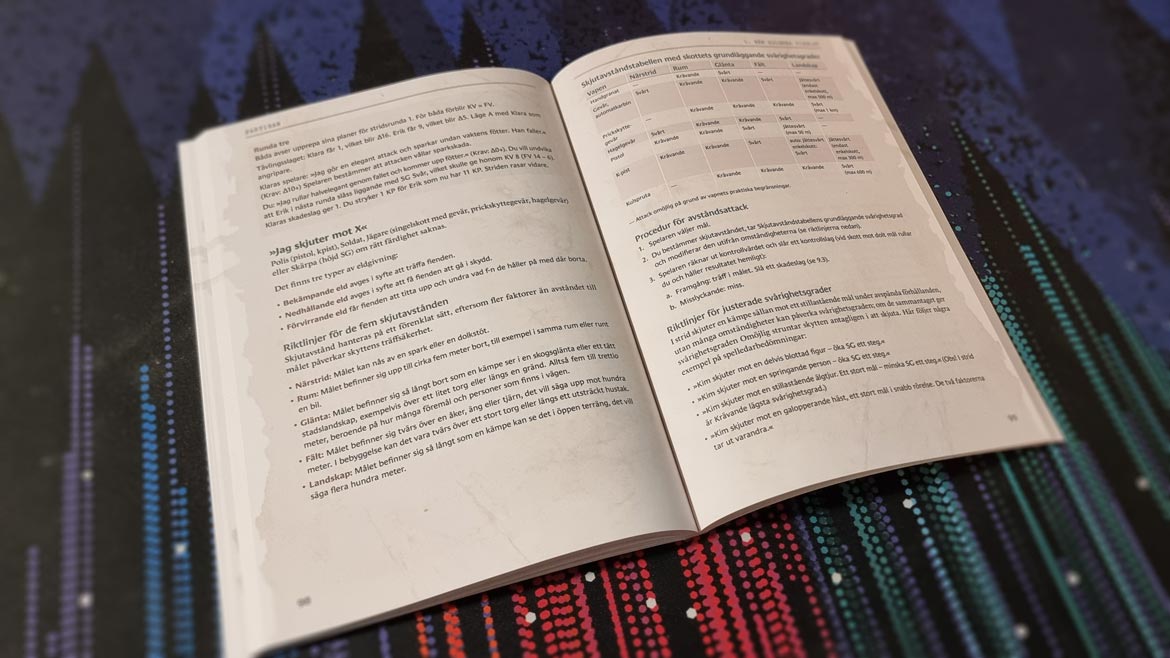 PARTISAN
Runda tre
Båda avser upprepa sina planer för stridsrunda 1. För båda förblir KV = FV.
Tävlingsslaget: Klara får 1, vilket blir Δ16. Erik får 9, vilket blir Δ5. Läge A med Klara som
angripare.
Klaras spelare: »Jag gör en elegant attack och sparkar undan vaktens fötter. Han faller.«
(Krav: Δ10+) Spelaren bestämmer att attacken vållar sparkskada.
Du: »Jag rullar halvelegant genom fallet och kommer upp fötter.« (Krav: Δ0+). Du vill undvika
att Erik i nästa runda slåss liggande med SG Svår, vilket skulle ge honom KV 8 (FV 14 – 6).
Klaras skadeslag ger 1. Du stryker 1 KP för Erik som nu har 11 KP. Striden rasar vidare.
»Jag skjuter mot X«
Polis (pistol, kpist), Soldat, Jägare (singelskott med gevär, prickskyttegevär, hagelgevär)
eller Skärpa (höjd SG) om rätt färdighet saknas.
Det finns tre typer av eldgivning:
• Bekämpande eld avges i syfte att träffa fienden.
• Nedhållande eld avges i syfte att få fienden att gå i skydd.
• Förvirrande eld får fienden att titta upp och undra vad f-n de håller på med där borta.
Riktlinjer för de fem skjutavstånden
Skjutavstånd hanteras på ett förenklat sätt, eftersom fler faktorer än avståndet till
målet påverkar skyttens träffsäkerhet.
• Närstrid: Målet kan nås av en spark eller en dolkstöt.
• Rum: Målet befinner sig upp till cirka fem meter bort, till exempel i samma rum eller runt
en bil.
• Glänta: Målet befinner sig så långt bort som en kämpe ser i en skogsglänta eller ett tätt
stadslandskap, exempelvis över ett litet torg eller längs en gränd. Alltså fem till trettio
meter, beroende på hur många föremål och personer som finns i vägen.
• Fält: Målet befinner sig tvärs över en åker, äng eller tjärn, det vill säga upp mot hundra
meter. I bebyggelse kan det vara tvärs över ett stort torg eller längs ett utsträckt hustak.
• Landskap: Målet befinner sig så långt som en kämpe kan se det i öppen terräng, det vill
säga flera hundra meter.
98
Skjutavståndstabellen med skottets grundläggande svårighetsgrader
Vapen Närstrid Rum Glänta Fält Landskap
Handgranat — Krävande Svårt — —
Gevär, automatkarbin Svårt Krävande Krävande Krävande Jättesvårt (endast enkelskott, max 300 m)
Prickskytte-gevär — Krävande Krävande Krävande Svårt (max 1 km)
Hagelgevär Svårt Krävande Krävande Svårt —
Pistol Krävande Krävande Krävande Jättesvårt (max 50 m) —
K-pist Krävande Krävande Svårt auto: Jättesvårt enkelskott: Svårt Jättesvårt (endast enkelskott, max 300 m)
Kulspruta — Krävande Krävande Krävande Svårt (max 600 m)
— Attack omöjlig på grund av vapnets praktiska begränsningar.
Procedur för avståndsattack
1. Spelaren väljer mål.
2. Du bestämmer skjutavståndet, tar Skjutavståndstabellens grundläggande svårighetsgrad
och modifierar den utifrån omständigheterna (se riktlinjerna nedan).
3. Spelaren räknar ut kontrollvärdet och slår ett kontrollslag (vid skott mot dolt mål rullar
du och håller resultatet hemligt):
a. Framgång: träff i målet. Slå ett skadeslag (se 9.3).
b. Misslyckande: miss.
Riktlinjer för justerade svårighetsgrader
I strid skjuter en kämpe sällan mot ett stillastående mål under avspända förhållanden,
utan många omständigheter kan påverka svårighetsgraden; om de sammantaget ger
svårighetsgraden Omöjlig struntar skytten antagligen i att skjuta. Här följer några
exempel på spelledarbedömningar:
• »Kim skjuter mot en delvis blottad figur – öka SG ett steg.«
• »Kim skjuter mot en springande person – öka SG ett steg.«
• »Kim skjuter mot en stillastående älgtjur. Ett stort mål – minska SG ett steg.« (Obs! I strid
är Krävande lägsta svårighetsgrad.)
• »Kim skjuter mot en galopperande häst, ett stort mål i snabb rörelse. De två faktorerna
tar ut varandra.«
99